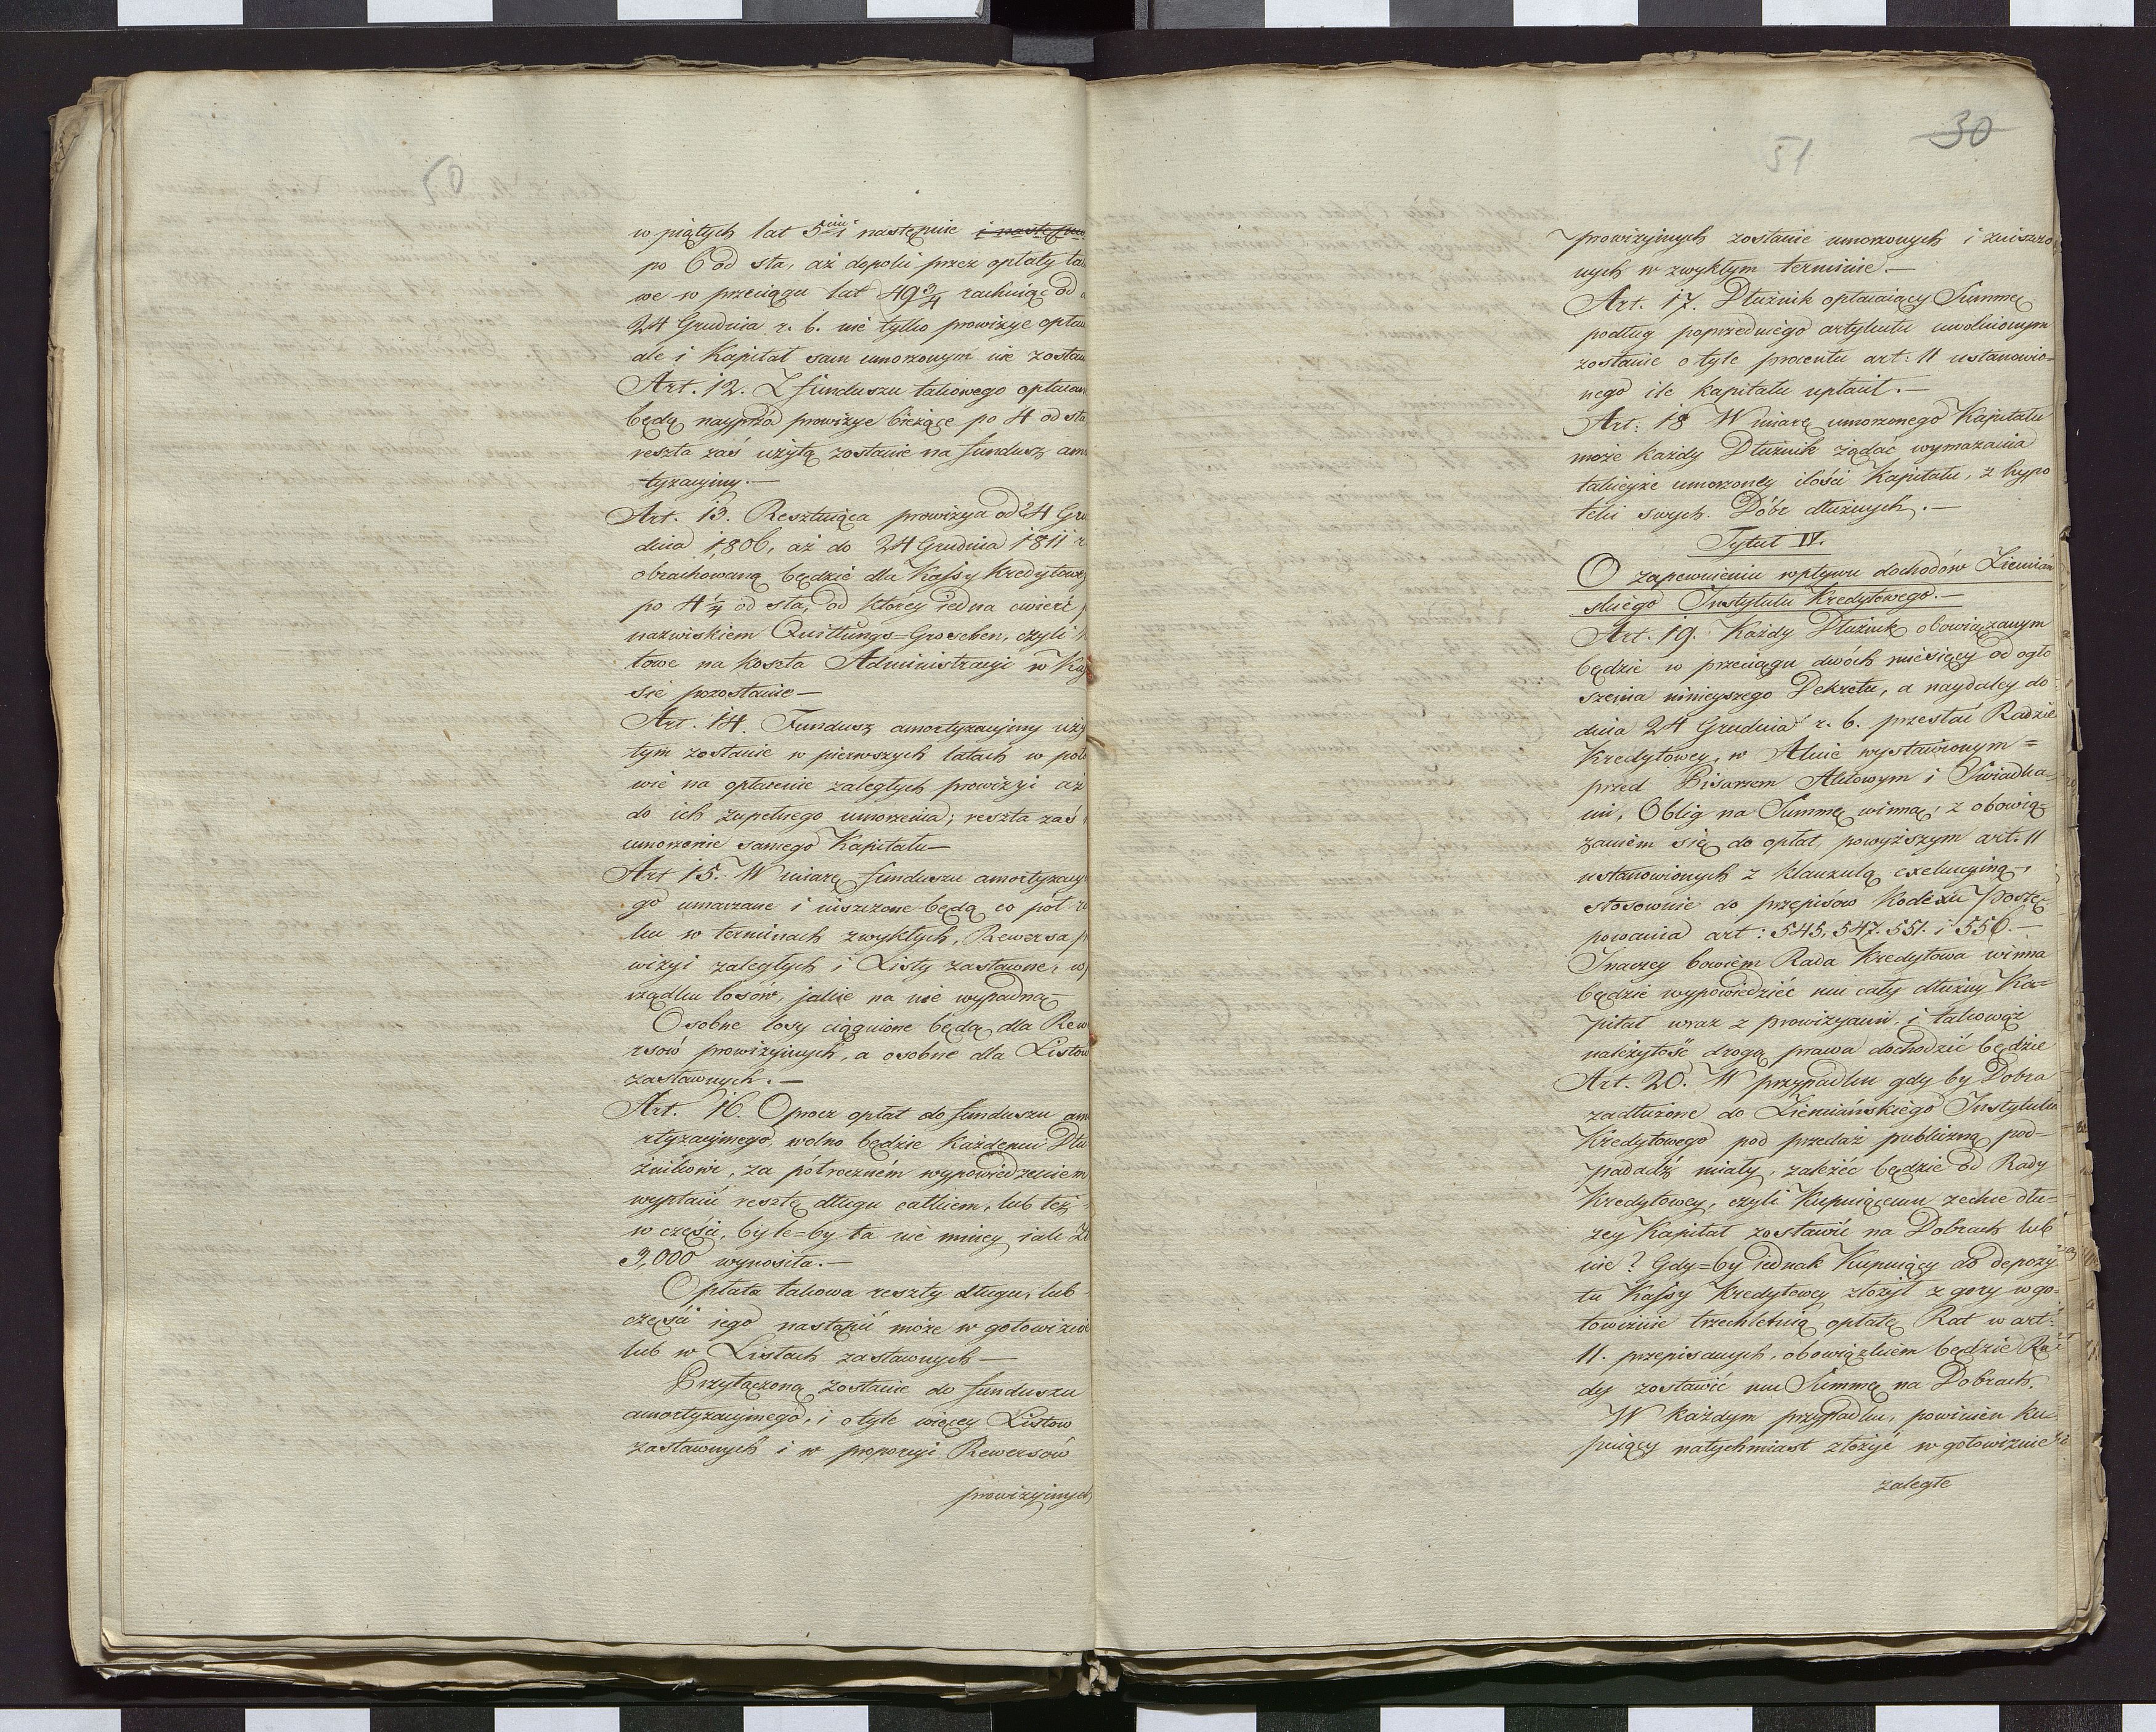 50
w piątych lat 5ciu i następnie i następnie
po 6 od sta, aż dopoki przez opłaty tako
we w przeciągu lat 49 3/4 rachuiąc od
24 Grudnia r. b. nie tylko prowizye opłac
ale i Kapitał sam umorzonym nie zostan
Art. 12. Z funduszu takowego opłacan
będą nayprzód prowizye bieżące po 4 od sta
reszta zaś użytą zostanie na fundusz amo
tyzacyiny.—
Art. 13. Resztuiąca prowizya od 24 Gru
dnia 1,806, aż do 24 Grudnia 1811 r
obrachowaną będzie dla Kassy Kredytowey
po 4 1/4 od sta, od ktorey iedna cwierć
nazwiskiem Quittungs=Groschen, czyli
towe na koszta Administracyi w Kas
sie pozostanie—
Art. 14. Fundusz amortyzacyiny uży
tym zostanie w pierwszych latach w poło
wie na opłacenie zaległych prowizyi aż
do ich zupełnego umorzenia; reszta zaś
umorzenie samego Kapitału—
Art 15. W miarę funduszu amortyzacyi
go umarzane i niszczone będą co pół ro
ku w terminach zwykłych, Rewersa p
wizyi zaległych i Listy zastawne, w
rządku losów, jakie na nie wypadną—
Osobne losy ciągnione będą dla Rewe
rsów prowizyinych, a osobne dla Listow
zastawnych.—
Art. 16. Oprocz opłat do funduszu amo
rtyzacyinego, wolno będzie Każdemu Dłu
żnikowi, za półroczném wypowiedzeniem
wypłacić resztę długu całkiem, lub też
w części, byle=by ta nie mniey iak Zł
3,000 wynosiła.—
Opłata takowa reszty długu, lub
części iego nastąpić może w gotowiznie
lub w Listach zastawnych—
Przyłączoną zostanie do funduszu
amortyzacyinego, i o tyle więcey Listow
zastawnych i w proporcyi Rewersów
prowizyinych
30
51
prowizyinych zostanie umorzonych i zniszczo
nych w zwykłym terminie.—
Art. 17. Dłużnik opłacaiący Summę
podług poprzedniego artykułu uwolnionym
zostanie o tyle procentu art: 11 ustanowio=
nego ile kapitału upłacił.—
Art: 18 W miarę umorzonego Kapitału
może każdy Dłużnik żądać wymazania
takieyże umorzoney ilości Kapitału, z hypo
teki swych Dóbr dłużnych.—
Tytuł IV.
O zapewnieniu wpływu dochodów Ziemiań
skiego Instytutu Kredytowego.—
Art. 19. Każdy Dłużnik obowiązanym
będzie w przeciągu dwóch miesięcy od ogło
szenia ninieyszego Dekretu, a naydaley do
dnia 24 Grudnia r. b. przesłać Radzie
Kredytowey, w Akcie wystawionym=
przed Pisarzem Aktowym i Swiadka=
mi, Oblig na Summę winną, z obowią
zaniem się do opłat, powyższym art. 11
ustanowionych z klauzulą exekucyiną,
stosownie do przepisów Kodexu Postę
powania art: 545, 547. 551. i 556.—
Inaczey bowiem Rada Kredytowa winna
będzie wypowiedzieć mu cały dłużny Ka=
pitał wraz z prowizyami, i takowąż
należytość drogą prawa dochodzić będzie
Art. 20. W przypadku gdy by Dobra
zadłużone do Ziemiańskiego Instytutu
Kredytowego pod przedaż publiczną pod=
padadź miały, zależéć będzie od Rady
Kredytowey, czyli Kupuiącemu zechce dłu=
zey Kapitał zostawić na Dobrach lub
nie? Gdy=by iednak Kupuiący do depozy
tu Kassy Kredytowey złożył z gory w go
towiznie trzechletnią opłatę Rat w art:
11. przepisanych, obowiązkiem będzie Ra
dy zostawić mu Summę na Dobrach.
W każdym przypadku, powinien ku=
puiący natychmiast złożyć w gotowiznie
zaległe